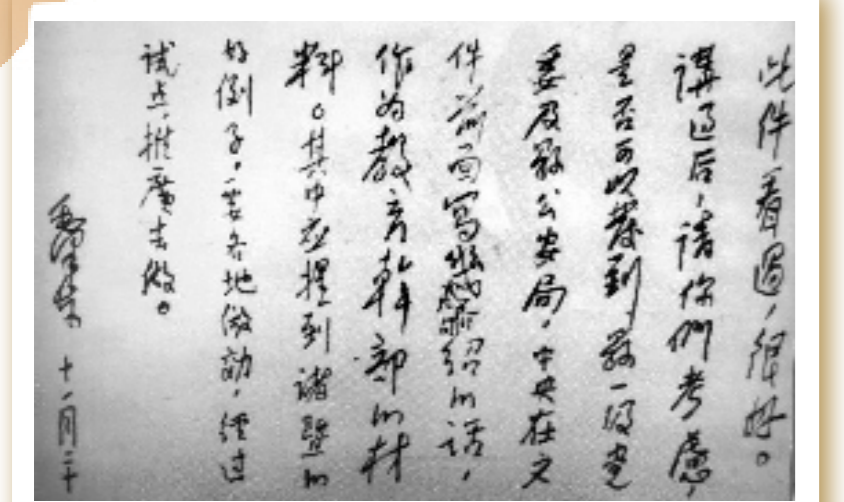 此件看過，很好。
講过后，請你們考慮，
是否可以發到縣一級党
委及縣公安局，中央在文
件前面寫幾句介紹的話，
作为教育幹部的材
料。其中应提到諸暨的
好例子，要各地倣効，經过
試点，推廣去做。
毛澤东 十一月二十